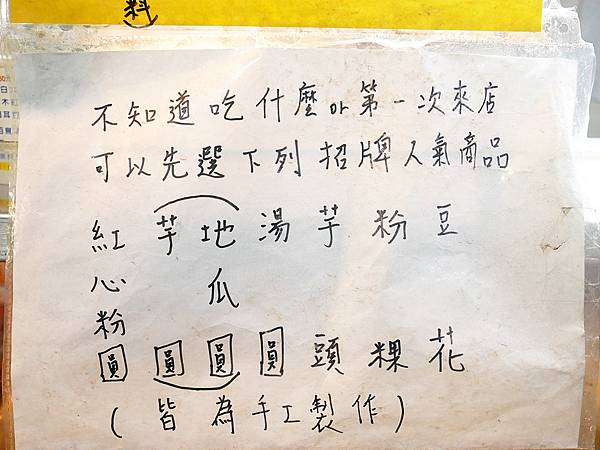 料)
不知道吃什麼or第一次來店
可以先選下列招牌人氣商品
豆花
粉粿
芋頭
湯圓
(地瓜圓
芋圓)
紅心粉圓
(皆為手工製作)